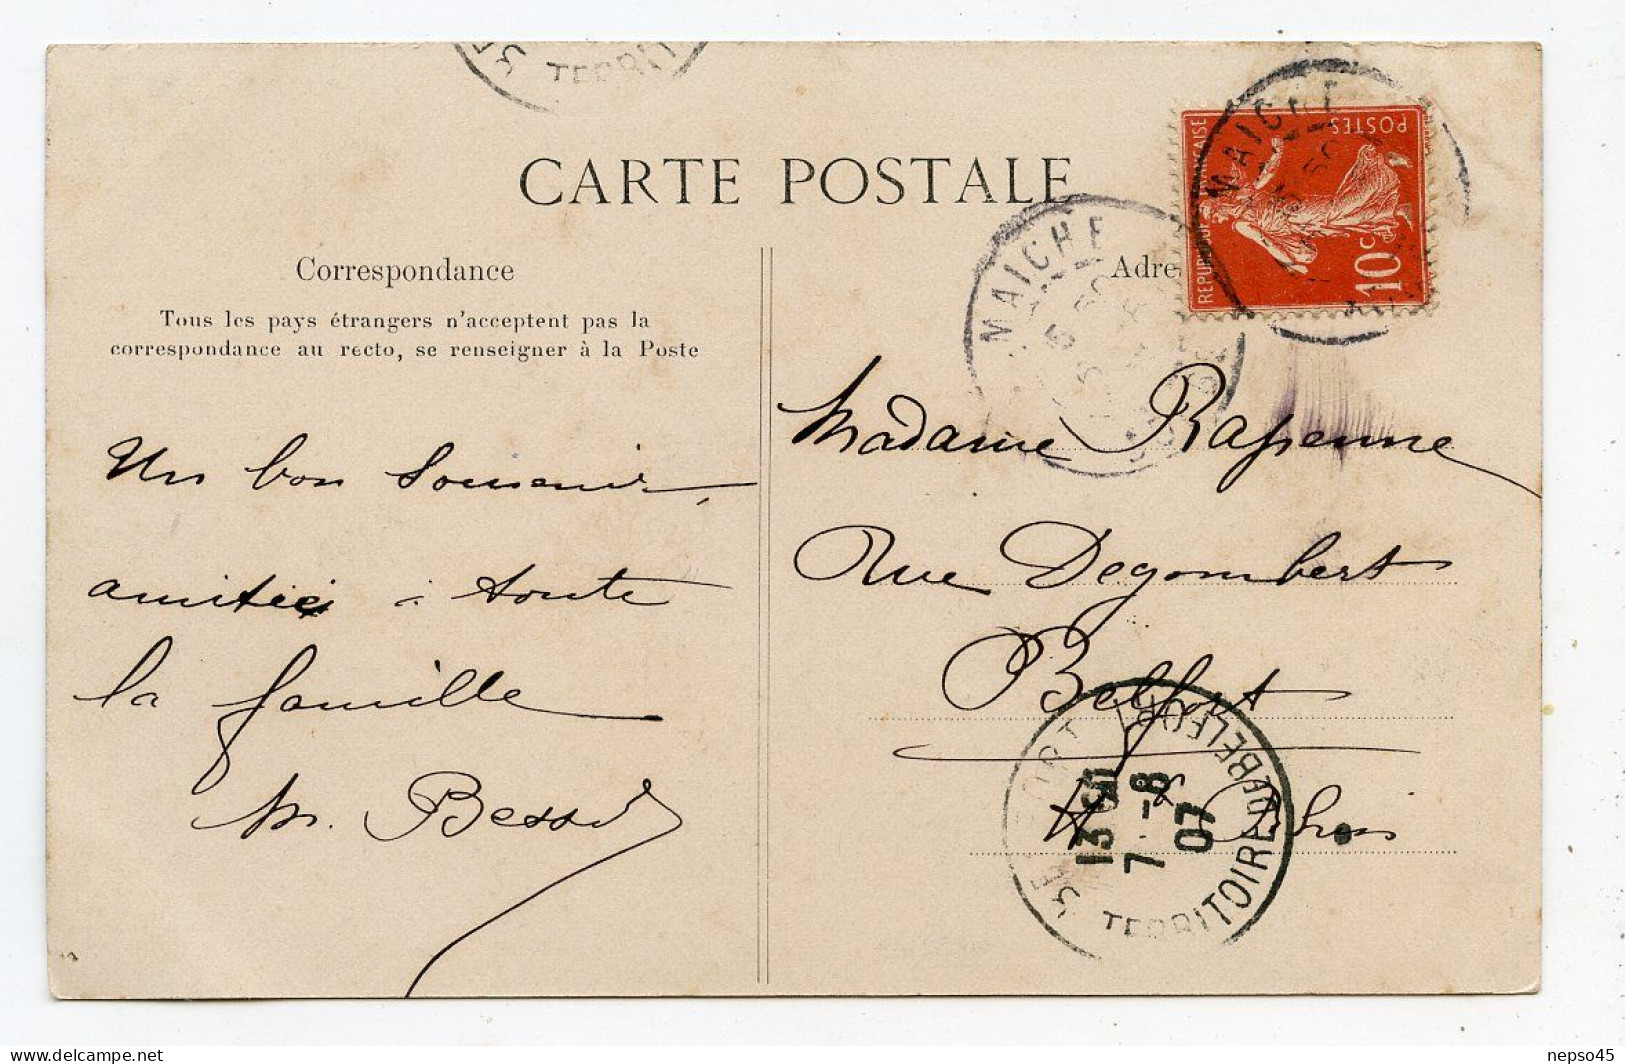 CARTE POSTALE
Correspondance
Tous les pays étrangers n'acceptent pas la
correspondance au recto, se renseigner à la Poste
Un bon Souvenir,
amitiés à toute
la famille
M. Bessi
Adre
REPUBLIQUE FRANÇAISE
POSTES
10c
MAICHE
MAICHE
Madame Rapenne
Rue Degombert
Belfort
Ht Rhin
BELFORT
13 50
7 -8
07
TERRITOIRE DE BELFORT
TERRIT
delcampe.net
nepso45